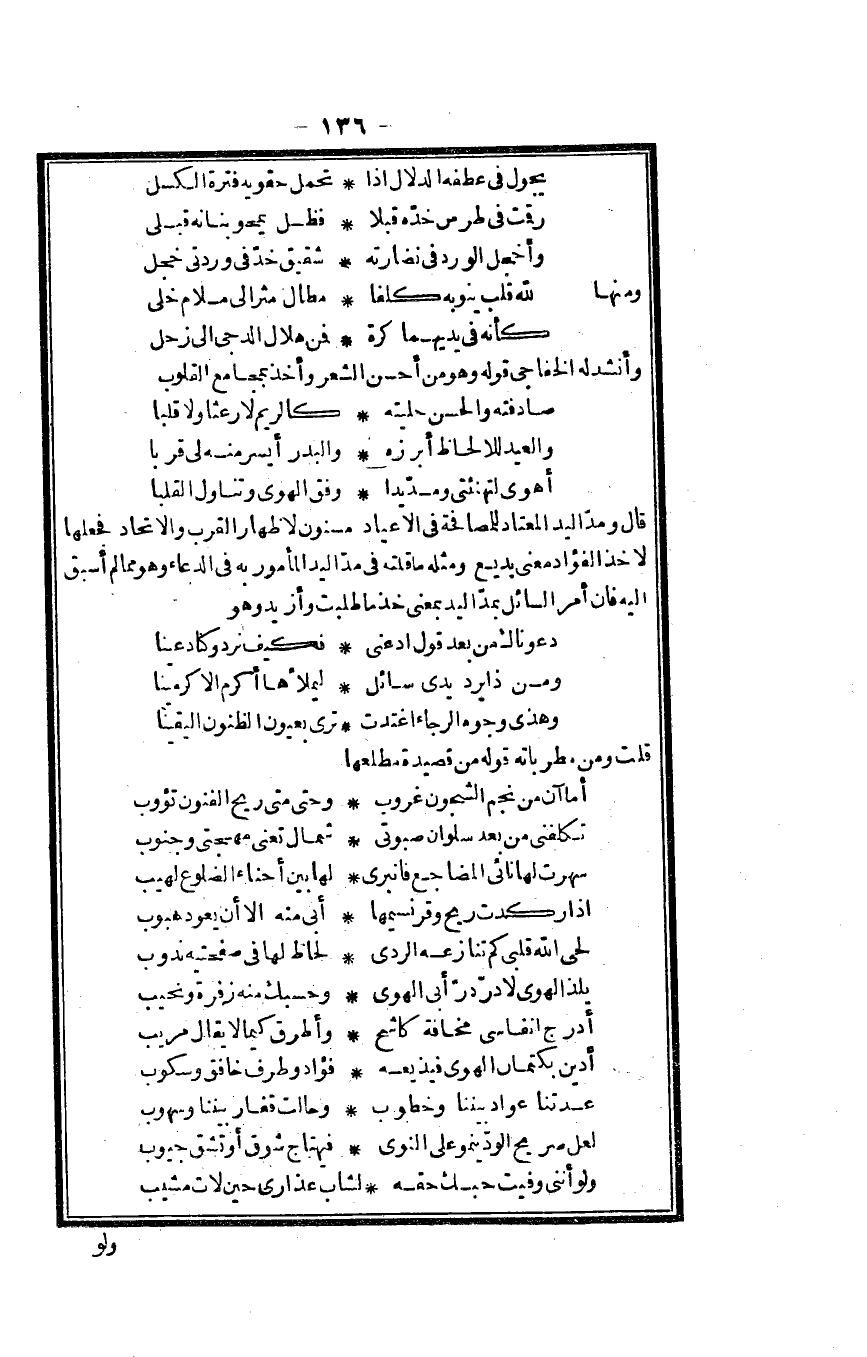 - ١٣٦ -
يجول فى عطفه الدلال اذا * تحمل حقويه فترة الكسل
رقت فى طرس خدّه قبلا * فظل يمحو بنانه قبلى
وأخجل الورد فى نضارته * شقيق خدّ فى وردتى خجل
ومنها لله قلب ينوبه كلفا * مطال مثرالى ملام خلى
كأنه فى يديهما كرة * فن هلال الدجى الى زحل
وأنشد له الخفاجى قوله وهو من أحسن الشعر وأخذ بمجامع القلوب
صادفته والحسن حليته * كالريم لا رعثا ولا قلبا
والعيد للالحاظ أبرزه * والبدر أيسر منه لى قربا
أهوى لتهنئتى ومدّيدا * وفق الهوى وتناول القلبا
قال ومدّ اليد المعتاد للمصافحة فى الاعياد مسنون لاظهار القرب والاتحاد فجعلها
لاخذ الفؤاد معنى بديع ومثله ما قلته فى مدّ اليد المأمور به فى الدعاء وهو ممالم أسبق
اليه فان أمر السائل بمدّ اليد بمعنى خذ ما طلبت وأزيد وهو
دعوناك من بعد قول ادعنى * فكيف نرد وكادعينا
ومن ذا يرد يدى سائل * ليملأها أكرم الاكرمينا
وهذى وجوه الرجاء اغتدت * ترى بعيون الظنون اليقينا
قلت ومن مطرباته قوله من قصيدة مطلعها
أما آن من نجم الشجون غروب * وحتى متى ريح الفنون تؤوب
تكلفنى من بعد سلوان صبوتى * شمال تعنى مهجتى وجنوب
سهرت لها نائى المضاجع فانبرى * لها بين أحناء الضلوع لهيب
اذا ركدت ريح وقر نسيمها * أبى منه الا أن يعود هبوب
لحى الله قلبى كم تنازعه الردى * لحاظ لها فى صفحتيه ندوب
يلذ الهوى لا درّ درّ أبى الهوى * وحسبك منه زفرة ونحيب
أدرج انفاسى مخافة كاشح * وأطرق كيما لا يقال مريب
أدين بكتمان الهوى فيذيعه * فؤاد وطرف خافق وسكوب
عدتنا عواد بيننا وخطوب * وحالت قفار بيننا وسهوب
لعل صريح الودّ ينمو على النوى * فيهتاج شوق أو تشق جيوب
ولو أننى وفيت حبك حقه * لشاب عذارى حين لات مشيب
ولو